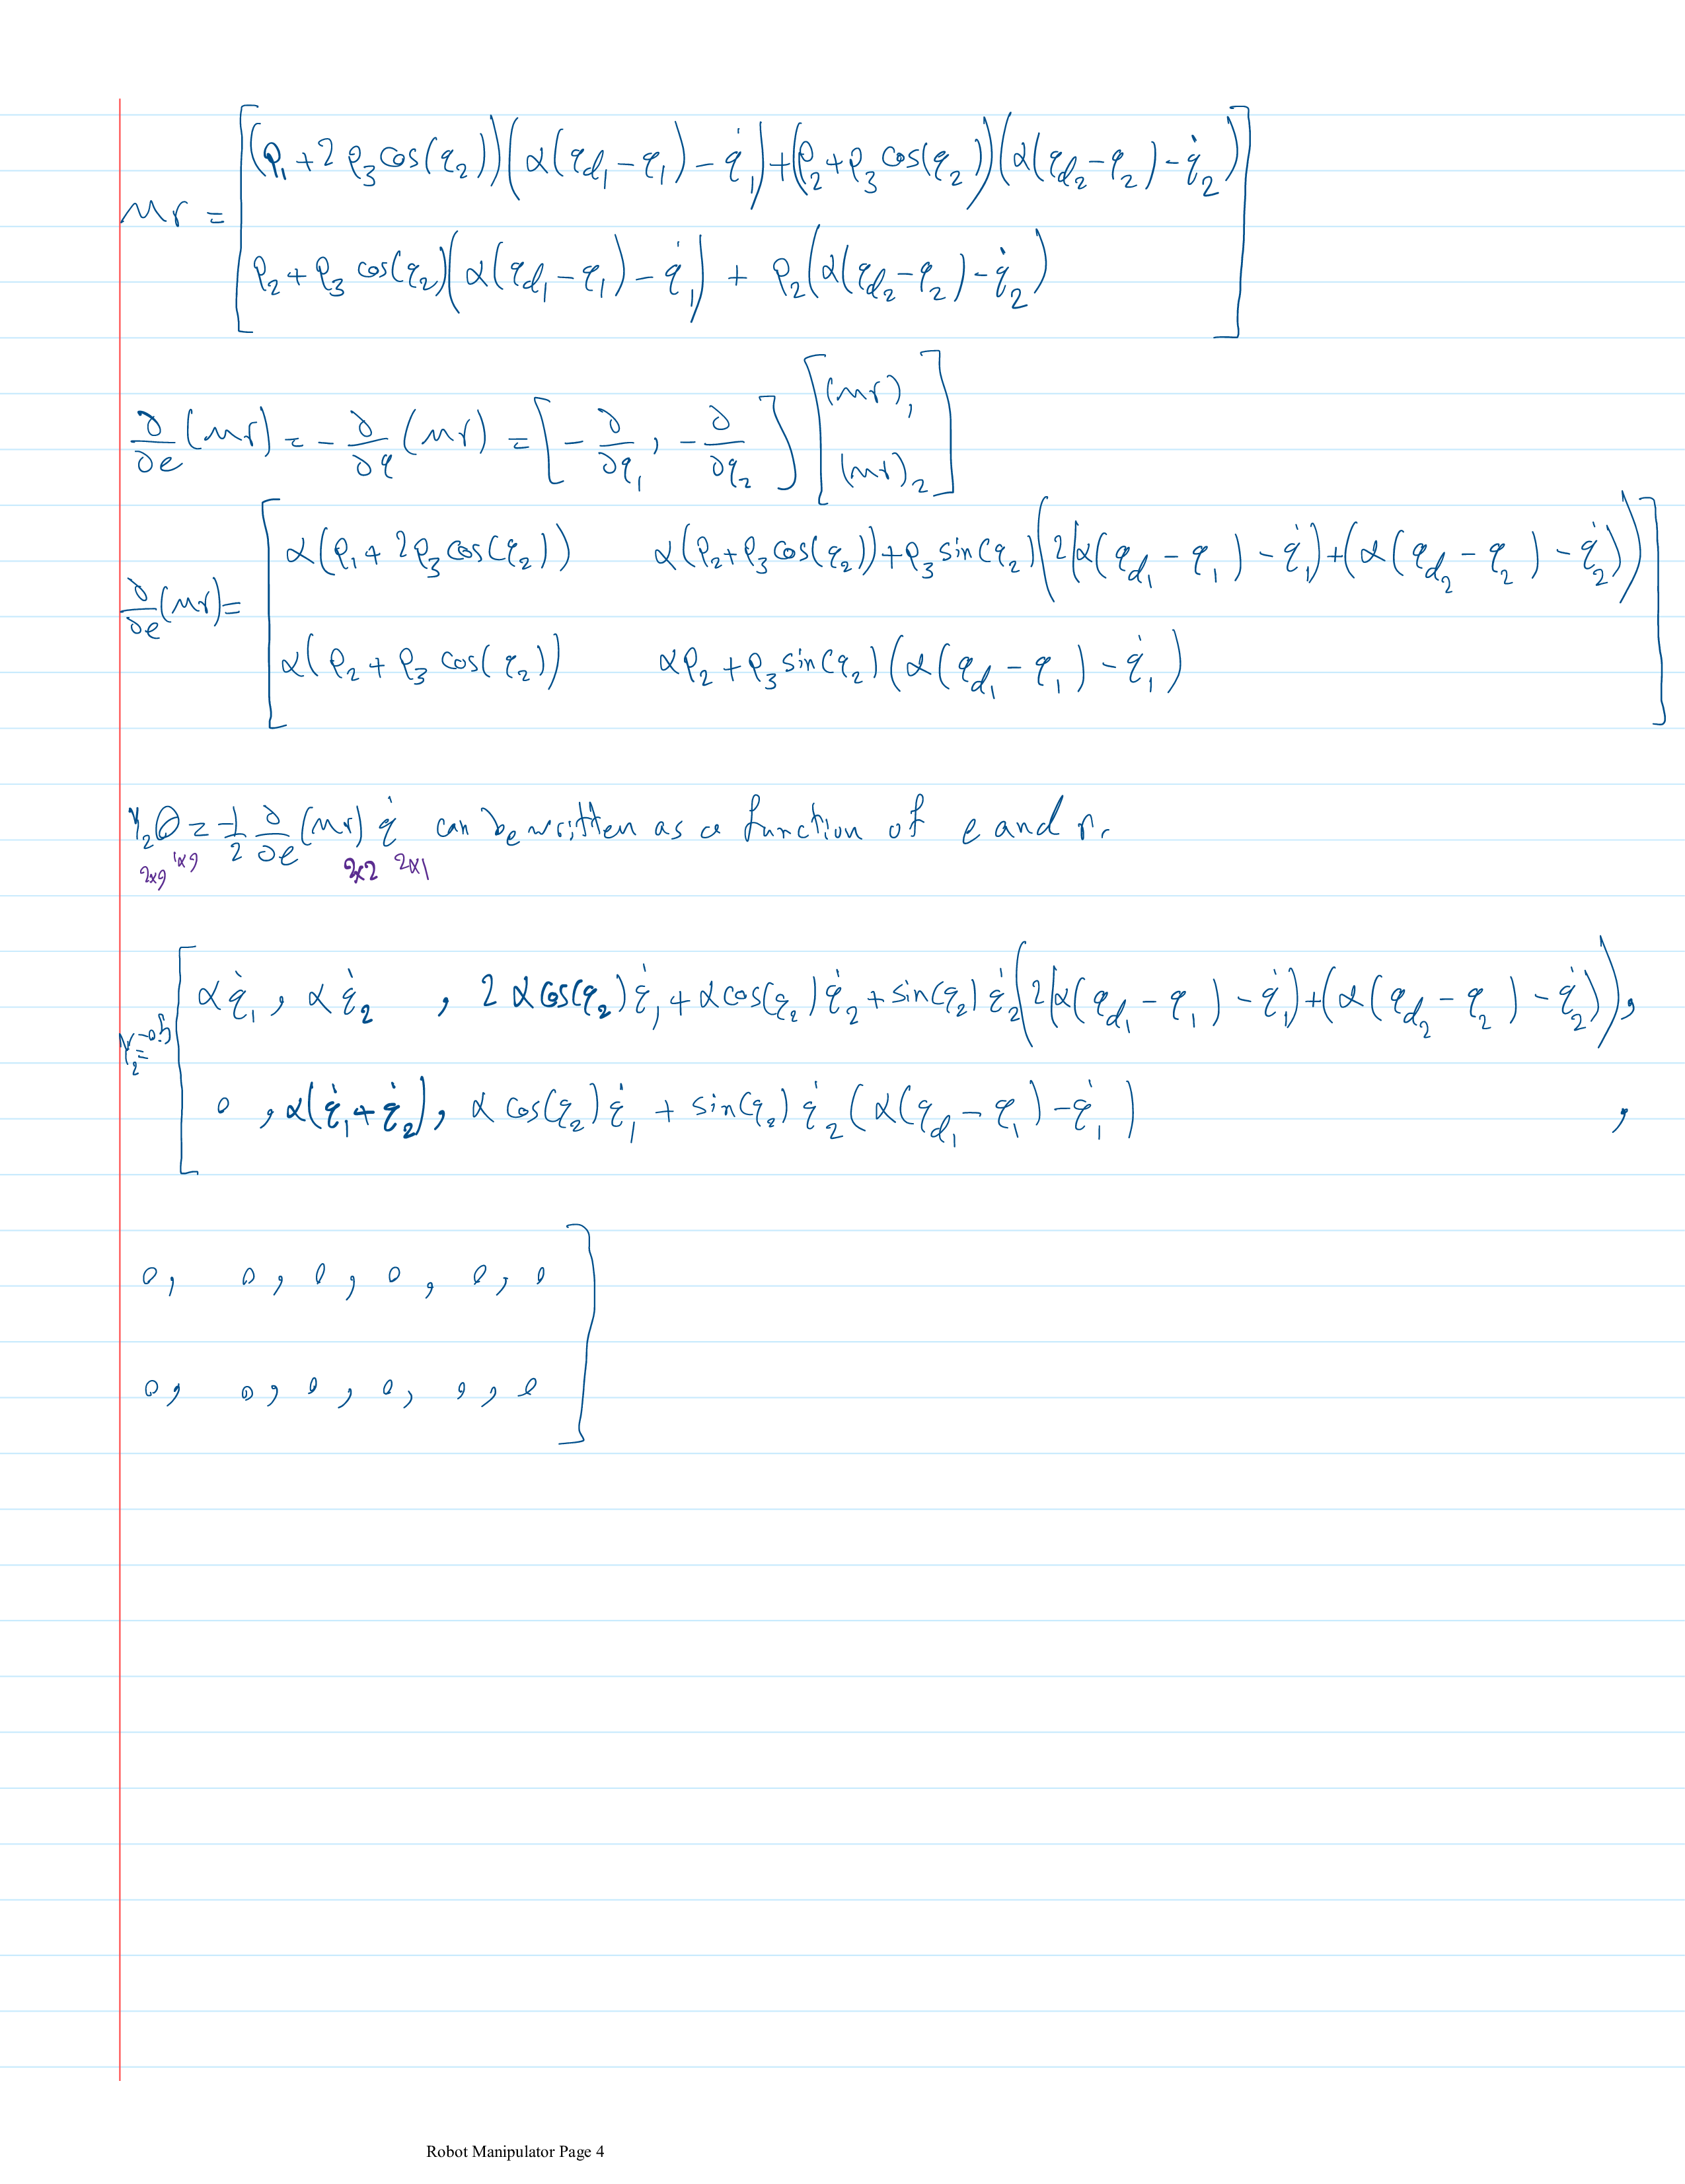 Mr = [ (P₁ + 2P₃cos(q₂))(α(q_d₁ − q₁) − q̇₁) + (P₂ + P₃cos(q₂))(α(q_d₂ − q₂) − q̇₂)
P₂ + P₃cos(q₂)(α(q_d₁ − q₁) − q̇₁) + P₂(α(q_d₂ − q₂) − q̇₂) ]
∂/∂e (Mr) = −∂/∂q (Mr) = [ −∂/∂q₁ , −∂/∂q₂ ] [ (Mr)₁
(Mr)₂ ]
∂/∂e (Mr) = [ α(P₁ + 2P₃cos(q₂)) α(P₂ + P₃cos(q₂)) + P₃sin(q₂)(2(α(q_d₁ − q₁) − q̇₁) + (α(q_d₂ − q₂) − q̇₂))
α(P₂ + P₃cos(q₂)) αP₂ + P₃sin(q₂)(α(q_d₁ − q₁) − q̇₁) ]
Y₂θ = −1/2 ∂/∂e (Mr) q̇ can be written as a function of e and r.
2x9 1x9 2x2 2x1
Y₂ = −0.5 [ αq̇₁ , αq̇₂ , 2αcos(q₂)q̇₁ + αcos(q₂)q̇₂ + sin(q₂)q̇₂(2(α(q_d₁ − q₁) − q̇₁) + (α(q_d₂ − q₂) − q̇₂)) ,
0 , α(q̇₁ + q̇₂) , αcos(q₂)q̇₁ + sin(q₂)q̇₂(α(q_d₁ − q₁) − q̇₁) ,
0, 0, 0, 0, 0, 0
0, 0, 0, 0, 0, 0 ]
Robot Manipulator Page 4